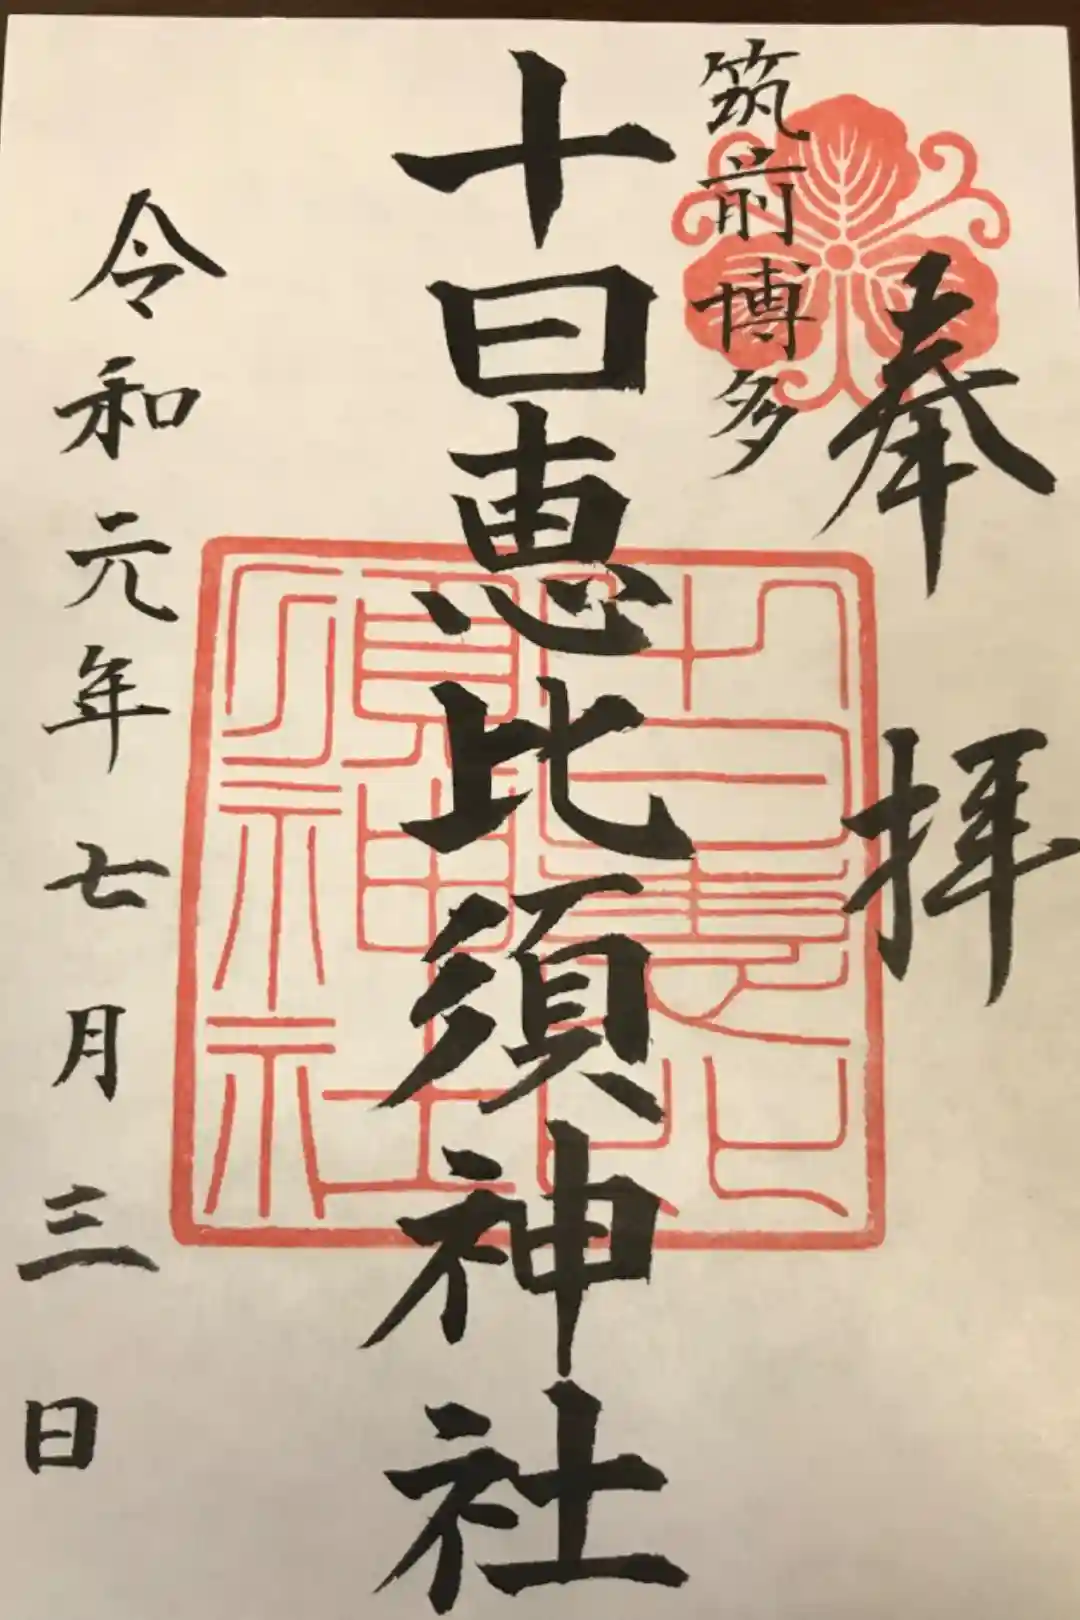 奉拝
筑前博多
十日恵比須神社
十日恵比須神社
令和元年七月三日